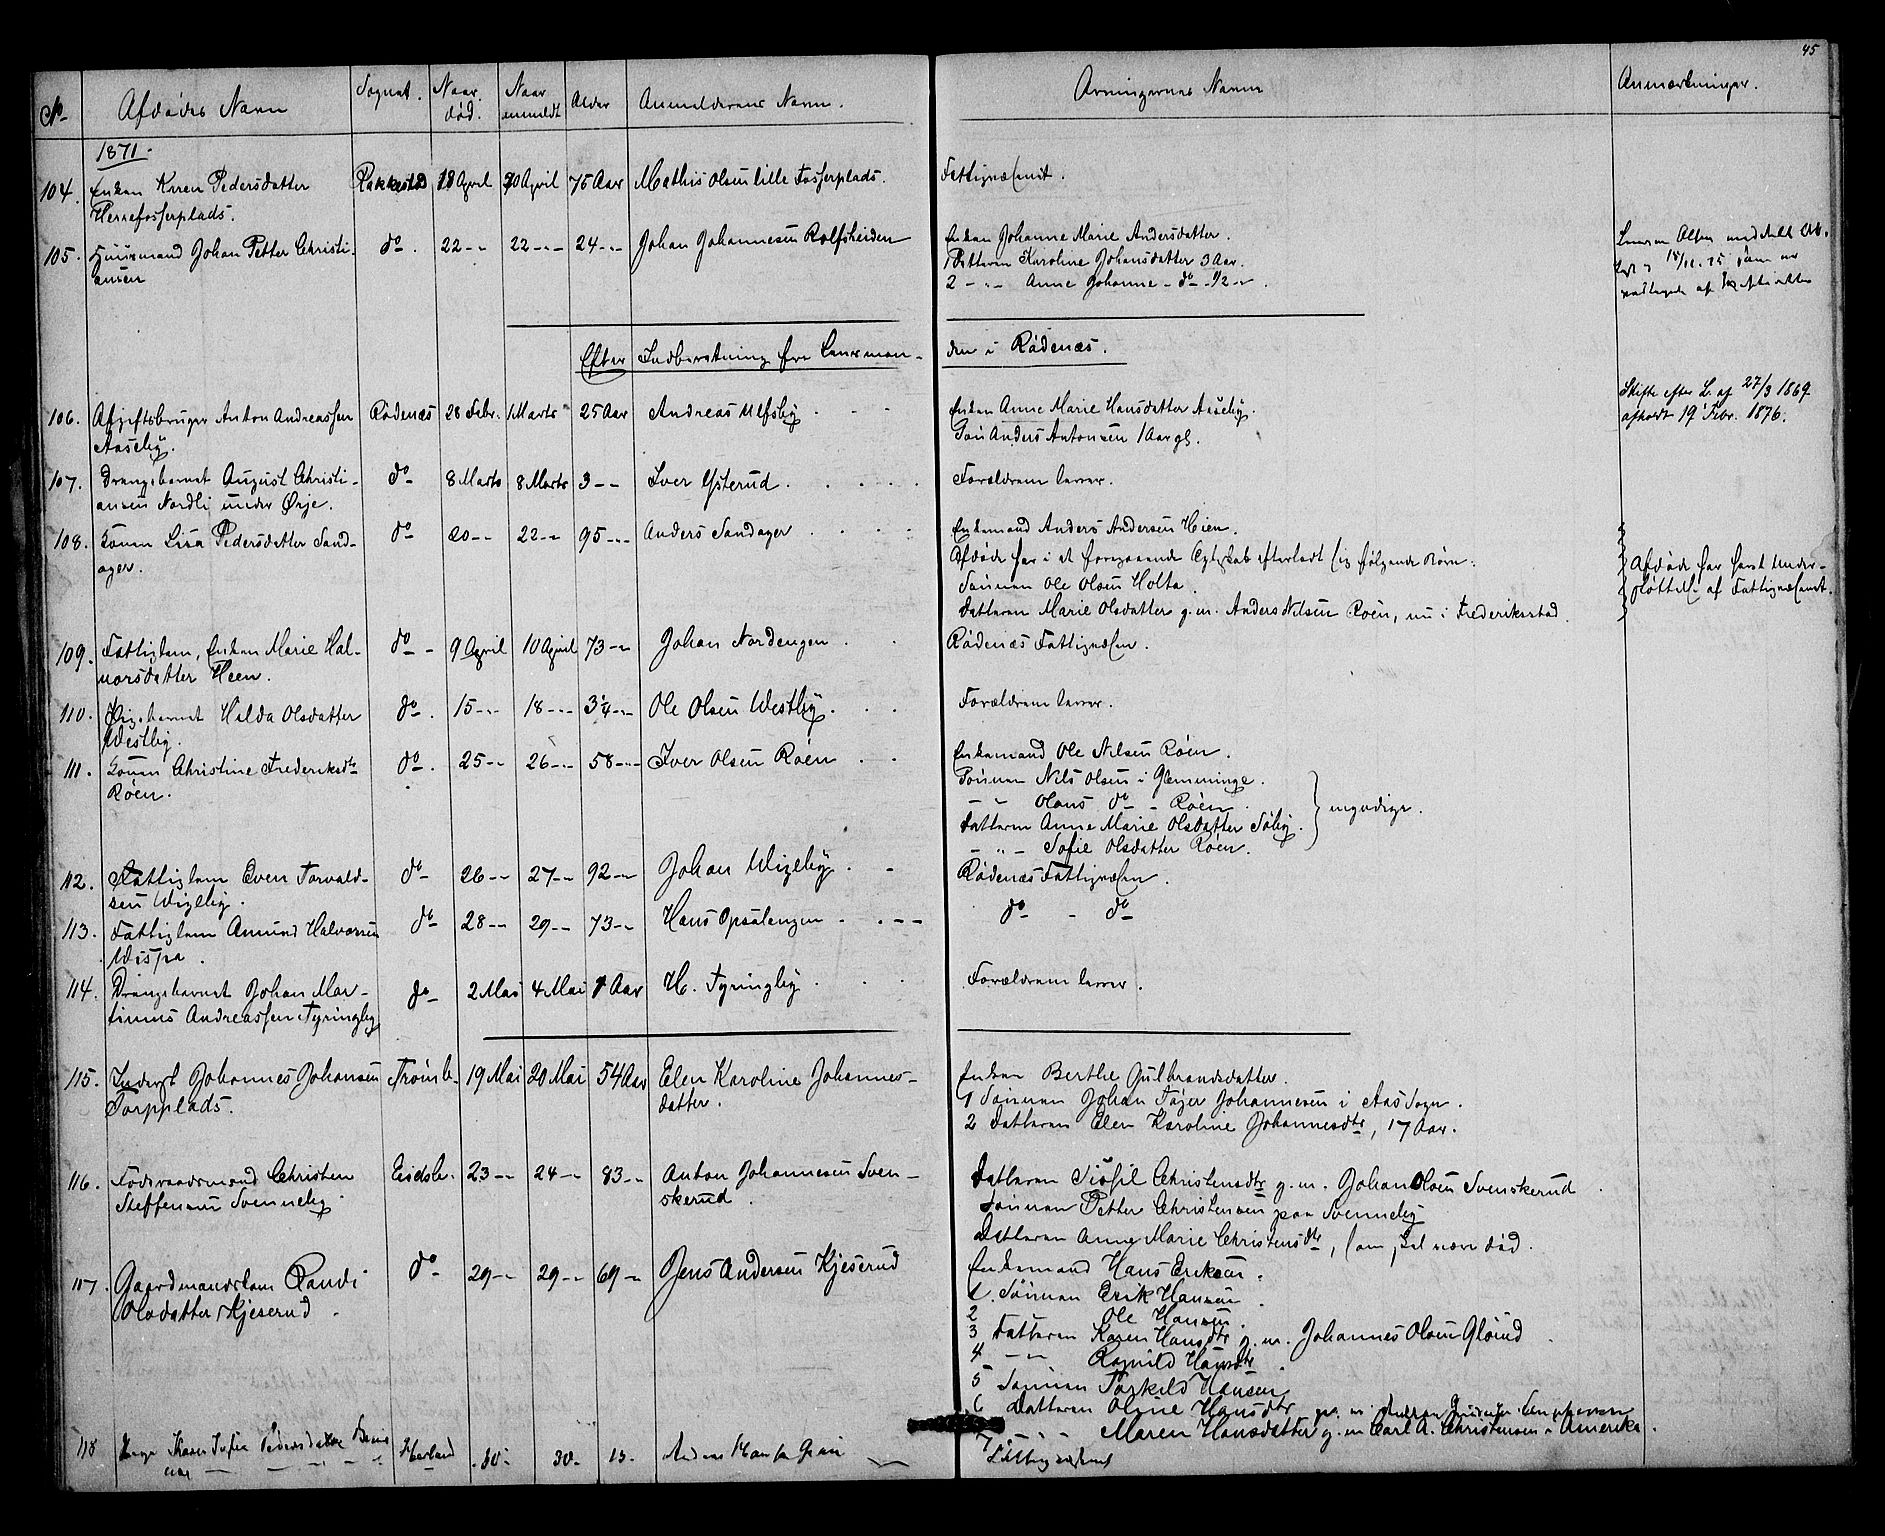 45
No Afdødes Navn Sognet. Naar død. Naar anmeldt Alder Anmelderens Navn. Arvingernes Navne Anmærkninger.
1871.
104. Enken Karen Pedersdatter Rakkestad 18 April 20 April 75 Aar Mathis Olsen lille Fosserplads. Fattigvæsenet.
Herrefosserplads.
105. Huusmand Johan Petter Christi- do. 22 -"- 22 -"- 24 -"- Johan Johannesen Rolfsheiden Enken Johanne Marie Andersdatter.
ansen 1 Datteren Karoline Johansdatter 3 Aar.
2 -"- Anne Johanne - do - 1/2 -"-.
Efter Indberetning fra Lensman-den i Rødenæs.
106. Afgiftsbruger Anton Andreassen Rødenæs 28 Febr. 1 Marts 25 Aar Andreas Ulfsby Enken Anne Marie Hansdatter Aaseby. Skifte efter L. af 27/3 1869
Aaseby. Søn Anders Antonsen 1 Aar gl. afholdt 19 Febr. 1876.
107. Drengebarnet August Christi- do 8 Marts 8 Marts 3 -- Iver Ysterud. Forældrene lever.
ansen Nordli under Ørje.
108. Konen Lisa Pedersdatter Sand- do 20 -- 22 -- 95 -"- Anders Sandager Enkemand Anders Andersen Hien.
ager. Afdøde har i et foregaaende Egteskab efterladt sig følgende Børn: Afdøde har havt Under-
Sønnen Ole Olsen Holta. støttelse af Fattigvæsenet.
Datteren Marie Olsdatter g. m. Anders Nilsen Roen, nu i Frederiksstad.
109. Fattiglem, Enken Marie Hal- do - 9 April 10 April 73 -"- Johan Nordengen Rødenæs Fattigvæsen.
vorsdatter Heen.
110. Pigebarnet Hilda Olsdatter do. 15 -"- 18 -"- 3/4 -"- Ole Olsen Westby. Forældrene lever.
Westby.
111. Konen Christine Frederiksdtr do. 25 -- 26 -"- 58 -"- Iver Olsen Roen Enkemand Ole Nilsen Röen.
Roen. Sønnen Nils Olsen i Glemminge.
-"- Olaus do - Röen. myndige.
Datteren Anne Marie Olsdatter Söby.
-"- Sofie Olsdatter Roen.
112. Fattiglem Even Torvald- do 26 -- 27 -- 92 -- Johan Wigeby. Rødenæs Fattigvæsen.
sen Wigeby.
113. Fattiglem Amund Halvorsen do 28 -- 29 -- 73 -- Hans Opsalengen do - do
Wispa.
114. Drengebarnet Johan Mar- do 2 Mai 4 Mai 1 Aar H. Tyringby. Forældrene lever.
tinius Andreassen Tyringby
115. Inderst Johannes Johansen Trömb. 19 Mai 20 Mai 54 Aar Elen Karoline Johannes- Enken Berthe Gulbrandsdatter.
Torpplads. datter. 1 Sønnen Johan Töger Johannesen i Aas Sogn.
2 Datteren Elen Karoline Johannesdtr, 17 Aar.
116. Føderaadsmand Christen Eidsb. 23 -- 24 -- 83 -- Anton Johannesen Sven- Datteren Christensdtr g. m. Johan Olsen Svenskerud.
Steffensen Svenneby. skerud. Sønnen Petter Christensen paa Svenneby
Datteren Anne Marie Christensdtr, som skal være død.
117. Gaardmandskone Randi do 29 -- 29 -- 69 -- Jens Andersen Kjeserud Enkemand Hans Eriksen.
Olsdatter Kjeserud. 1. Sønnen Erik Hansen.
2 Ole Hansen.
3 Datteren Karen Hansdtr g. m. Johannes Olsen Glörud.
4 -"- Ragnild Hansdtr.
5 Sønnen Torkild Hansen
6 Datteren Oline Hansdtr g. m.
7 -"- Maren Hansdatter g. m Carl A. Christensen i Amerika.
118 Karen Sofie Pedersdatter Herland 30 - 30 - 13 - Fattigvæsenet